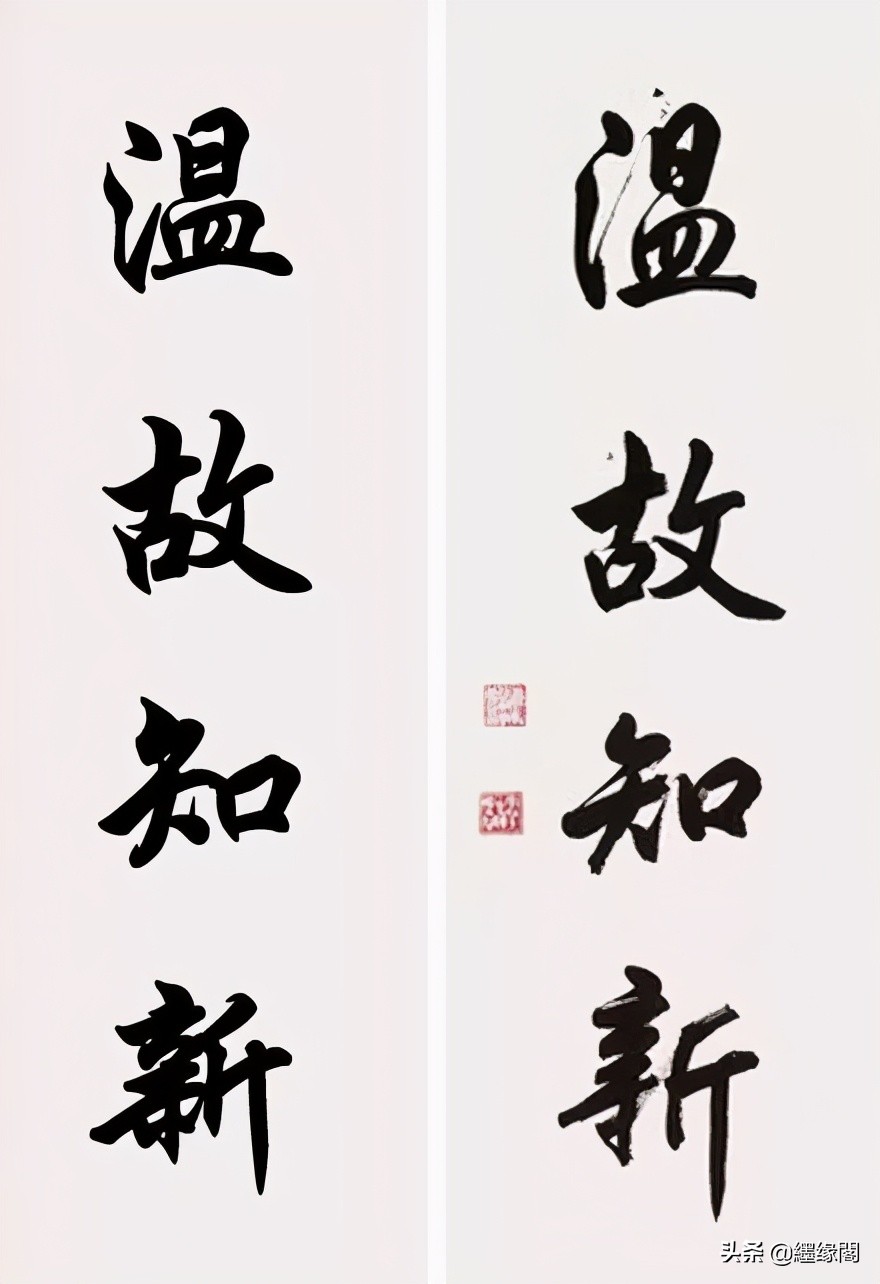 温故知新
温故知新
头条 @纆缘閣